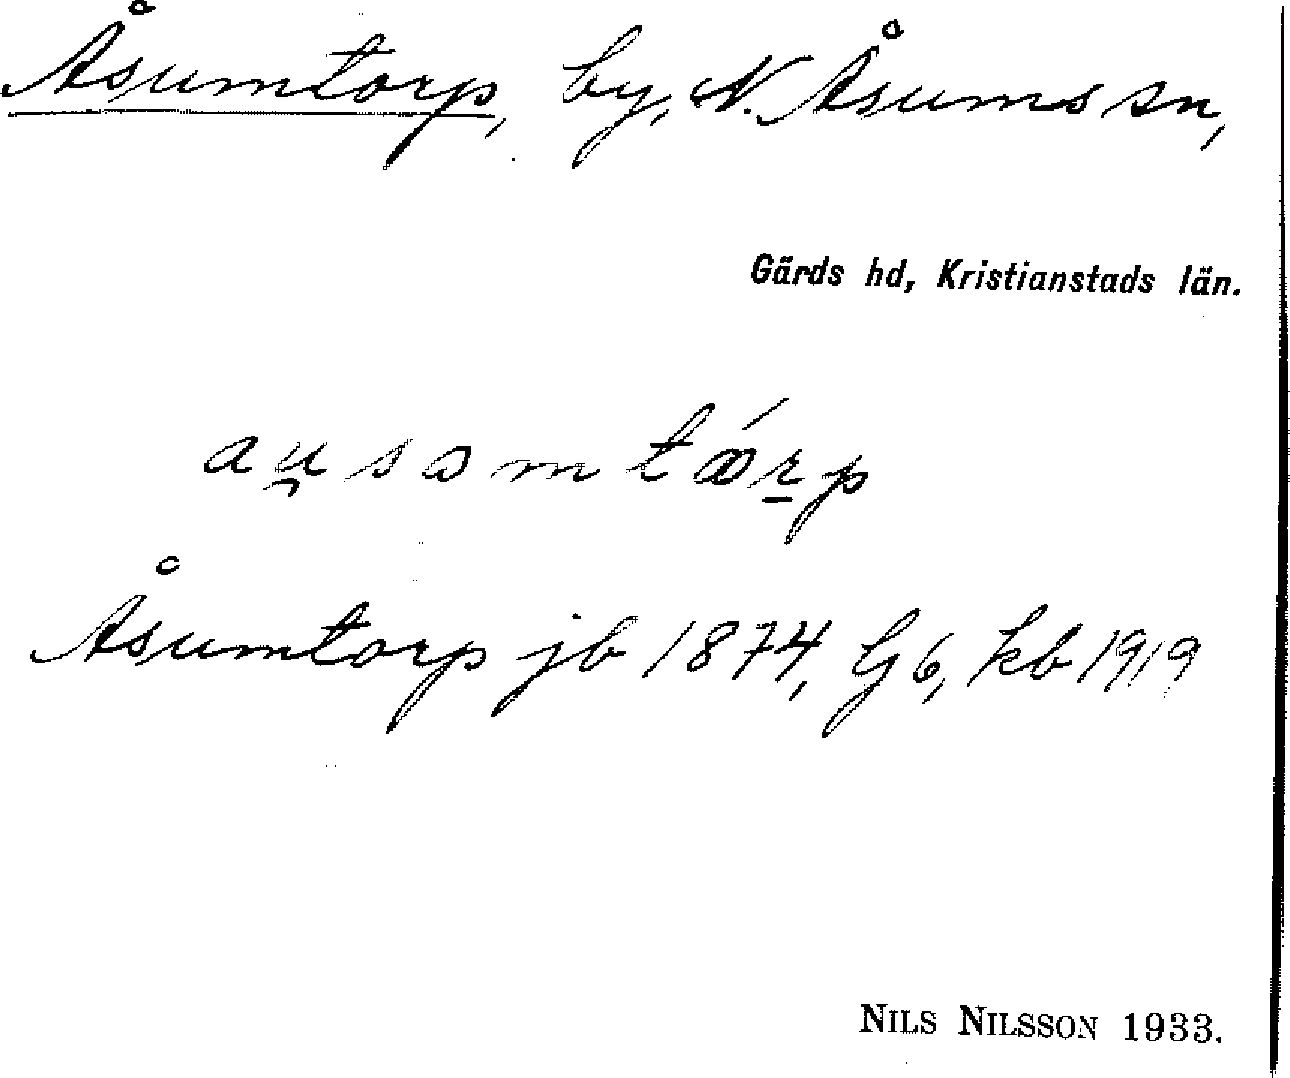 Åsumtorp, by, N. Åsums sn,
Gärds hd, Kristianstads län.
au̯səmtǿr̠p
Åsumtorp jb 1874, G6, kb 1919
NILS NILSSON 1933.